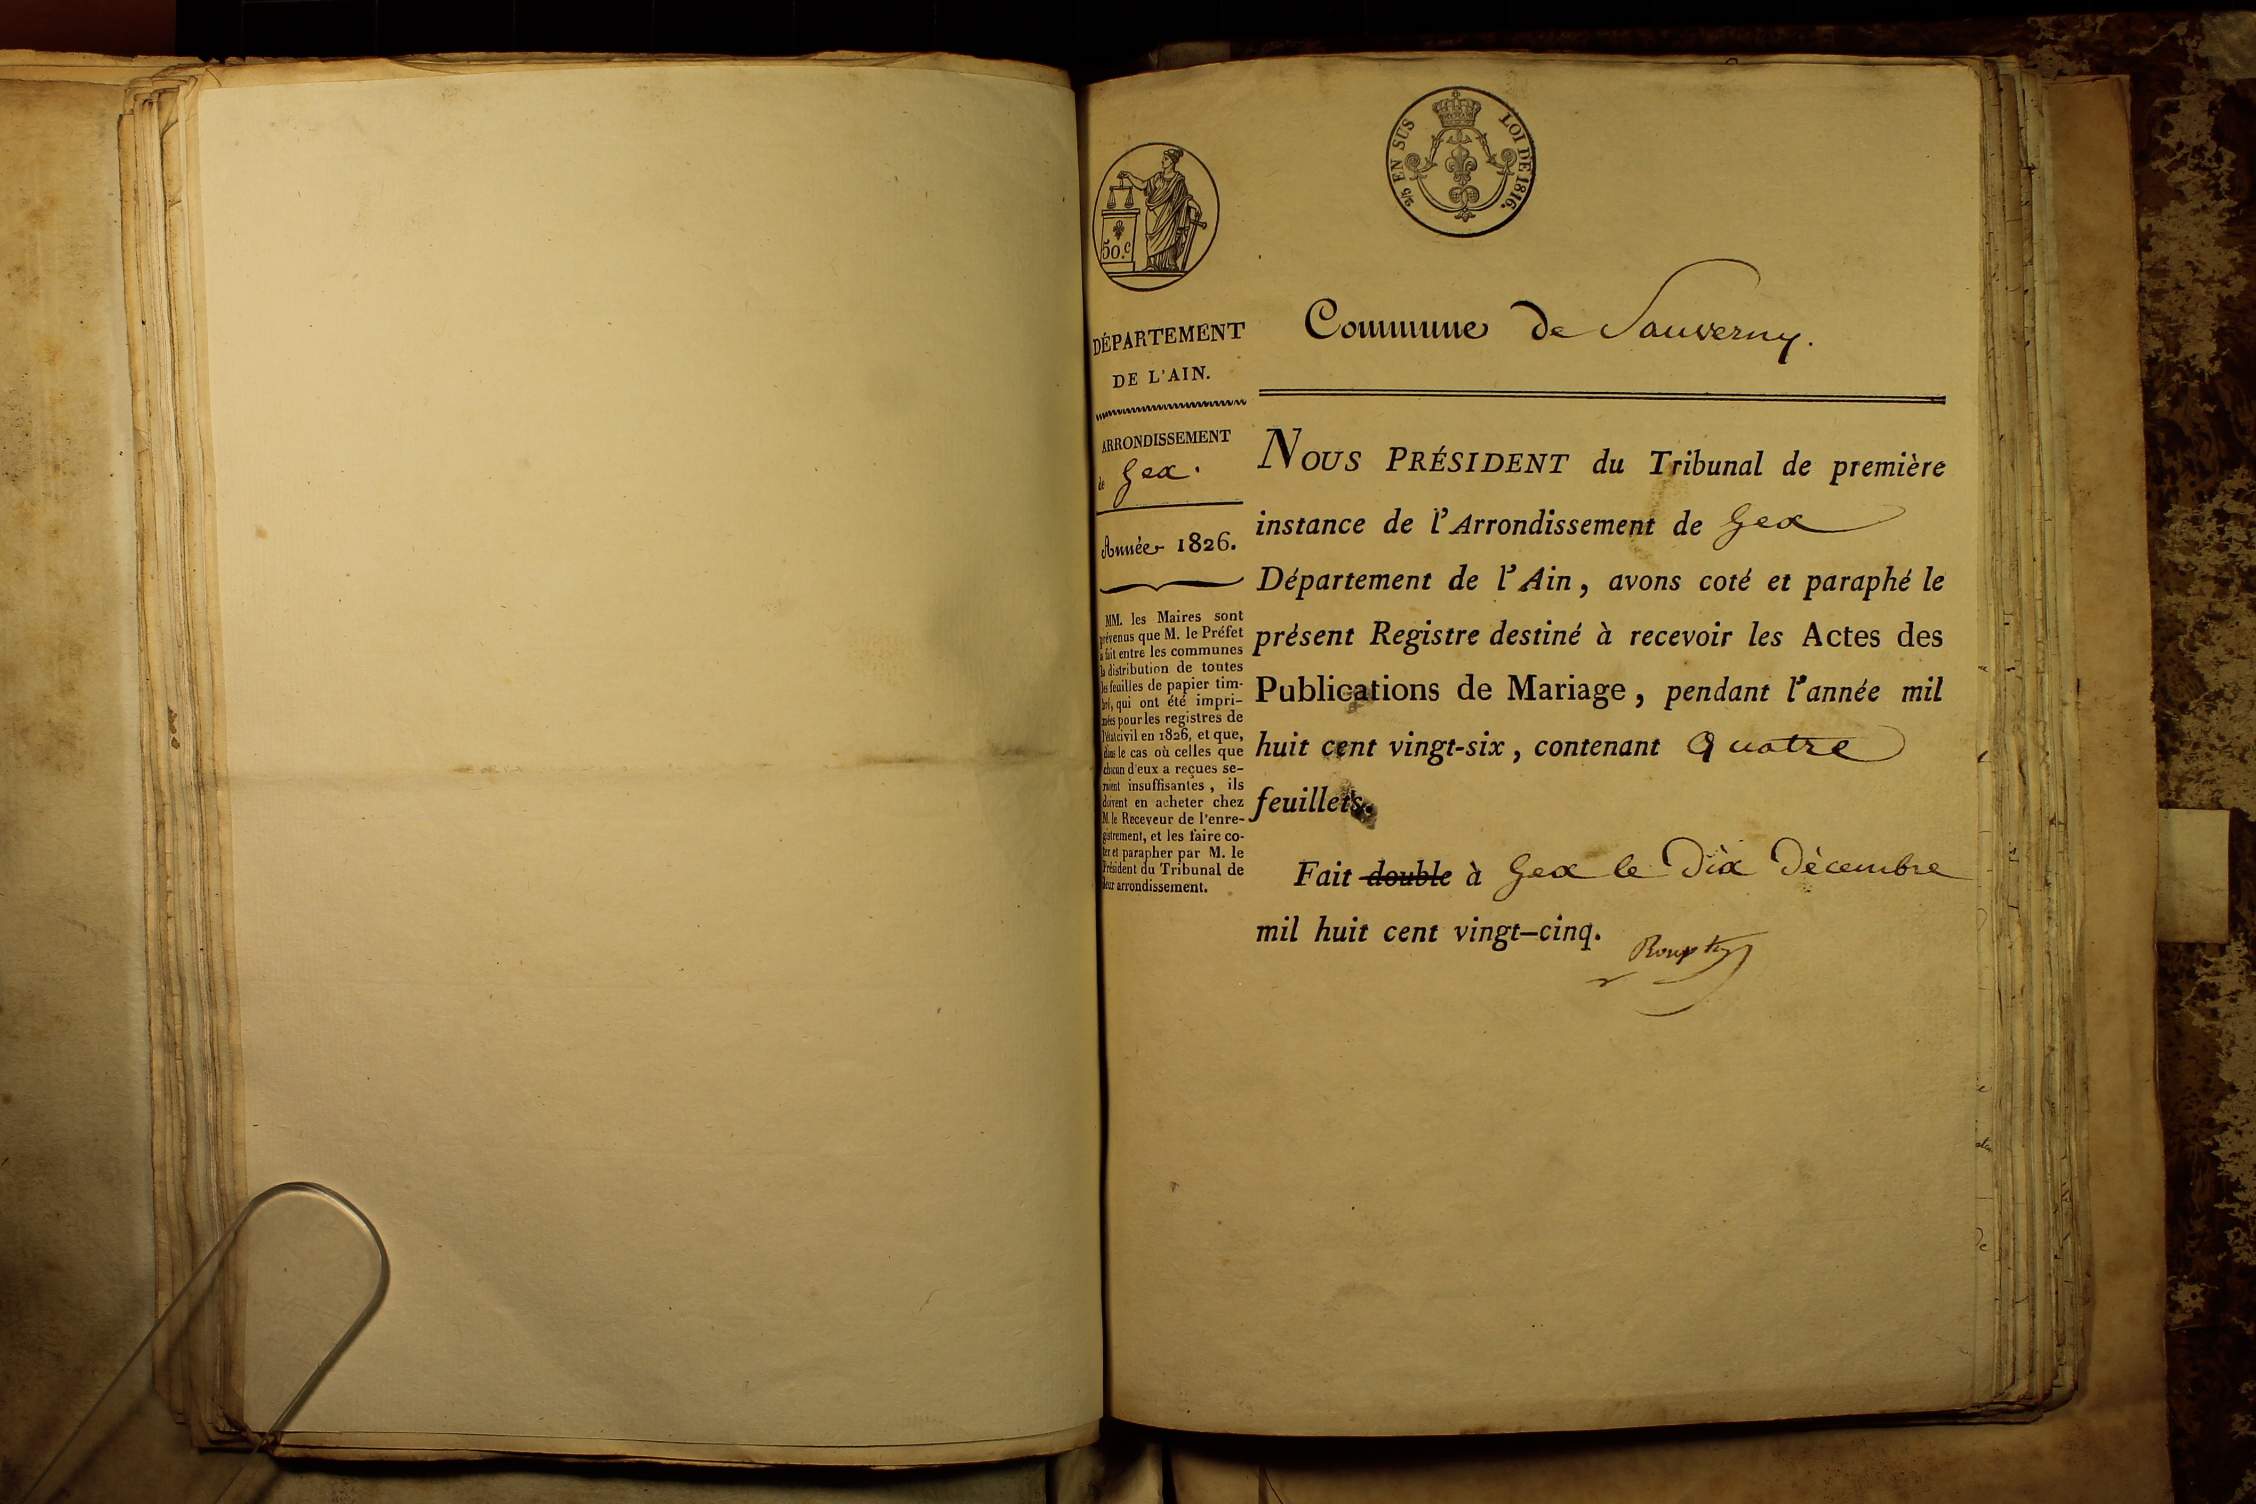 2/5 EN SUS LOI DE 1816.
50.c
DÉPARTEMENT
DE L'AIN.
ARRONDISSEMENT
de Gex.
Année 1826.
MM. les Maires sont
prévenus que M. le Préfet
a fait entre les communes
la distribution de toutes
les feuilles de papier tim-
bré, qui ont été impri-
mées pour les registres de
l'état civil en 1826, et que,
dans le cas où celles que
chacun d'eux a reçues se-
raient insuffisantes, ils
doivent en acheter chez
M. le Receveur de l'enre-
gistrement, et les faire co-
ter et parapher par M. le
Président du Tribunal de
leur arrondissement.
Commune de Sauverny.
NOUS PRÉSIDENT du Tribunal de première
instance de l'Arrondissement de Gex
Département de l'Ain, avons coté et paraphé le
présent Registre destiné à recevoir les Actes des
Publications de Mariage, pendant l'année mil
huit cent vingt-six, contenant Quatre
feuillets.
Fait double à Gex le Dix Décembre
mil huit cent vingt-cinq.